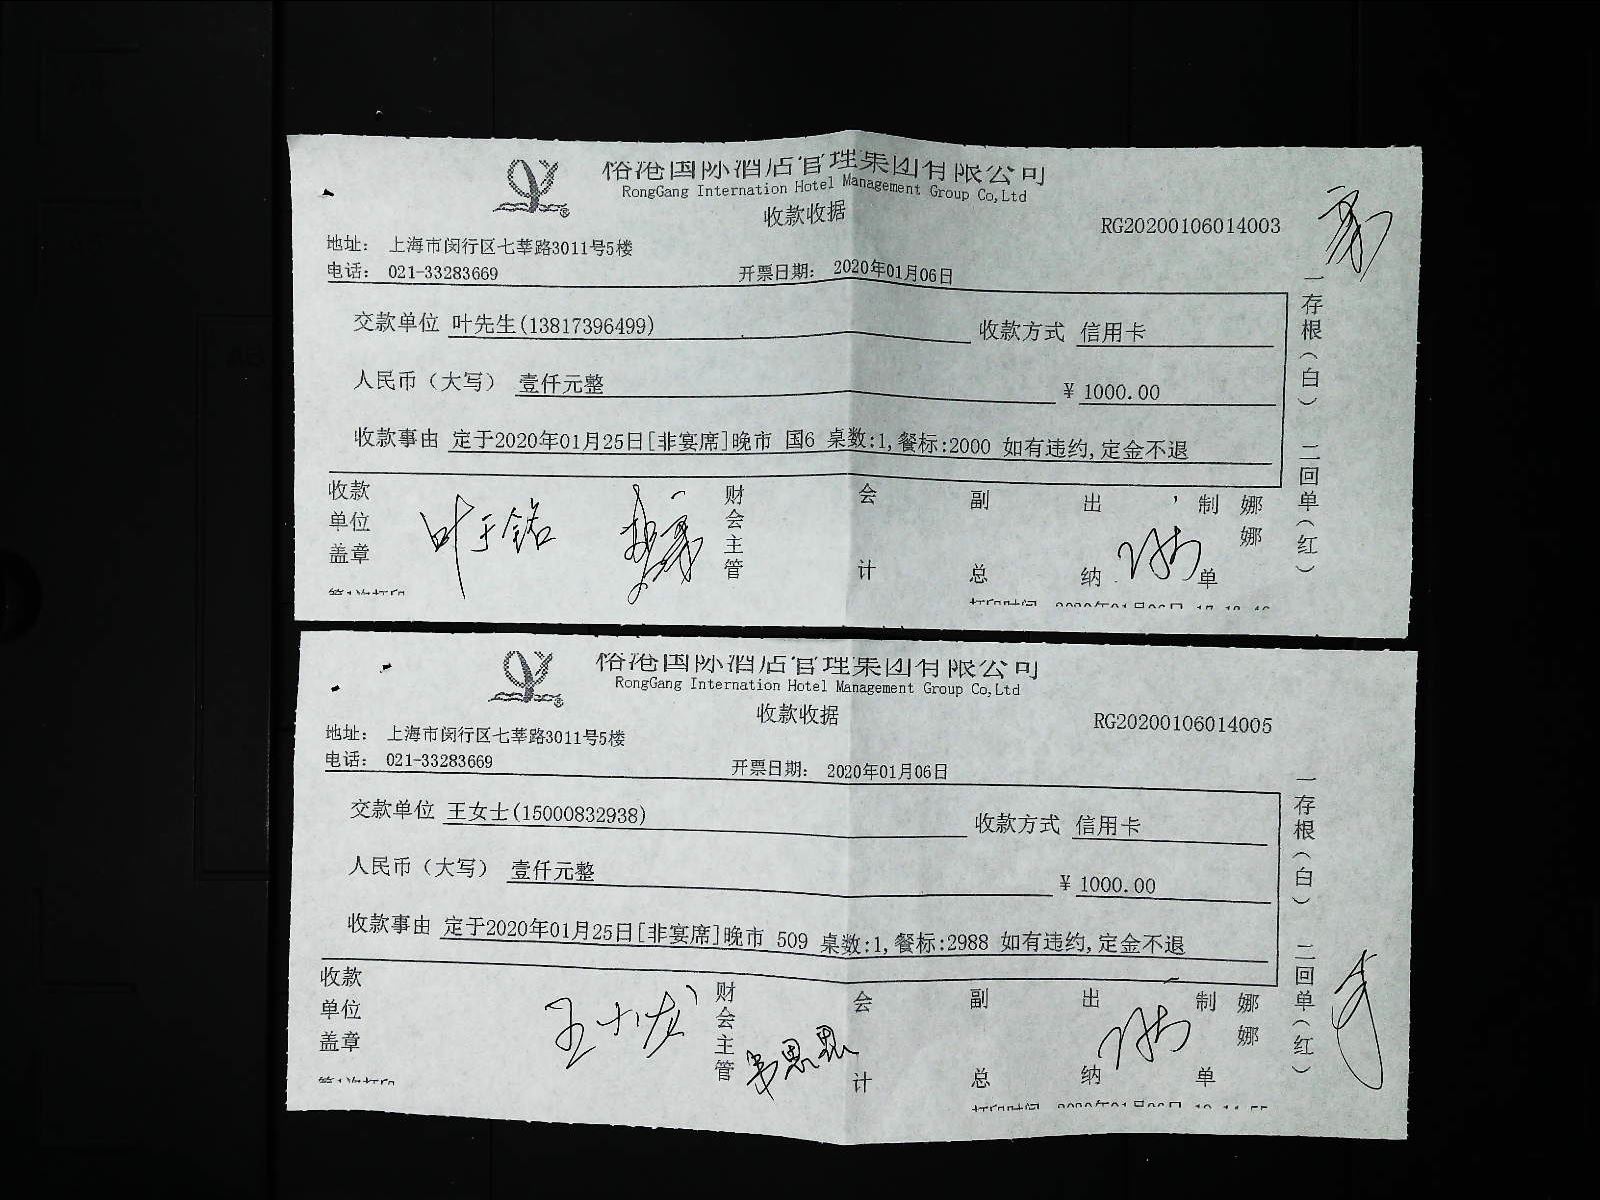 裕港国际酒店管理集团有限公司
RongGang Internation Hotel Management Group Co,Ltd
收款收据
RG20200106014003
地址： 上海市闵行区七莘路3011号5楼
电话： 021-33283669 开票日期： 2020年01月06日
交款单位 叶先生(13817396499) 收款方式 信用卡
人民币（大写） 壹仟元整 ¥ 1000.00
收款事由 定于2020年01月25日[非宴席]晚市 国6 桌数:1,餐标:2000 如有违约,定金不退
一存根（白） 二回单（红）
收款单位盖章 叶于铭 财会主管 会计 副总 出纳 制单 娜娜
第1次打印
裕港国际酒店管理集团有限公司
RongGang Internation Hotel Management Group Co,Ltd
收款收据
RG20200106014005
地址： 上海市闵行区七莘路3011号5楼
电话： 021-33283669 开票日期： 2020年01月06日
交款单位 王女士(15000832938) 收款方式 信用卡
人民币（大写） 壹仟元整 ¥ 1000.00
收款事由 定于2020年01月25日[非宴席]晚市 509 桌数:1,餐标:2988 如有违约,定金不退
一存根（白） 二回单（红）
收款单位盖章 王小龙 财会主管 会计 副总 出纳 制单 娜娜
第1次打印